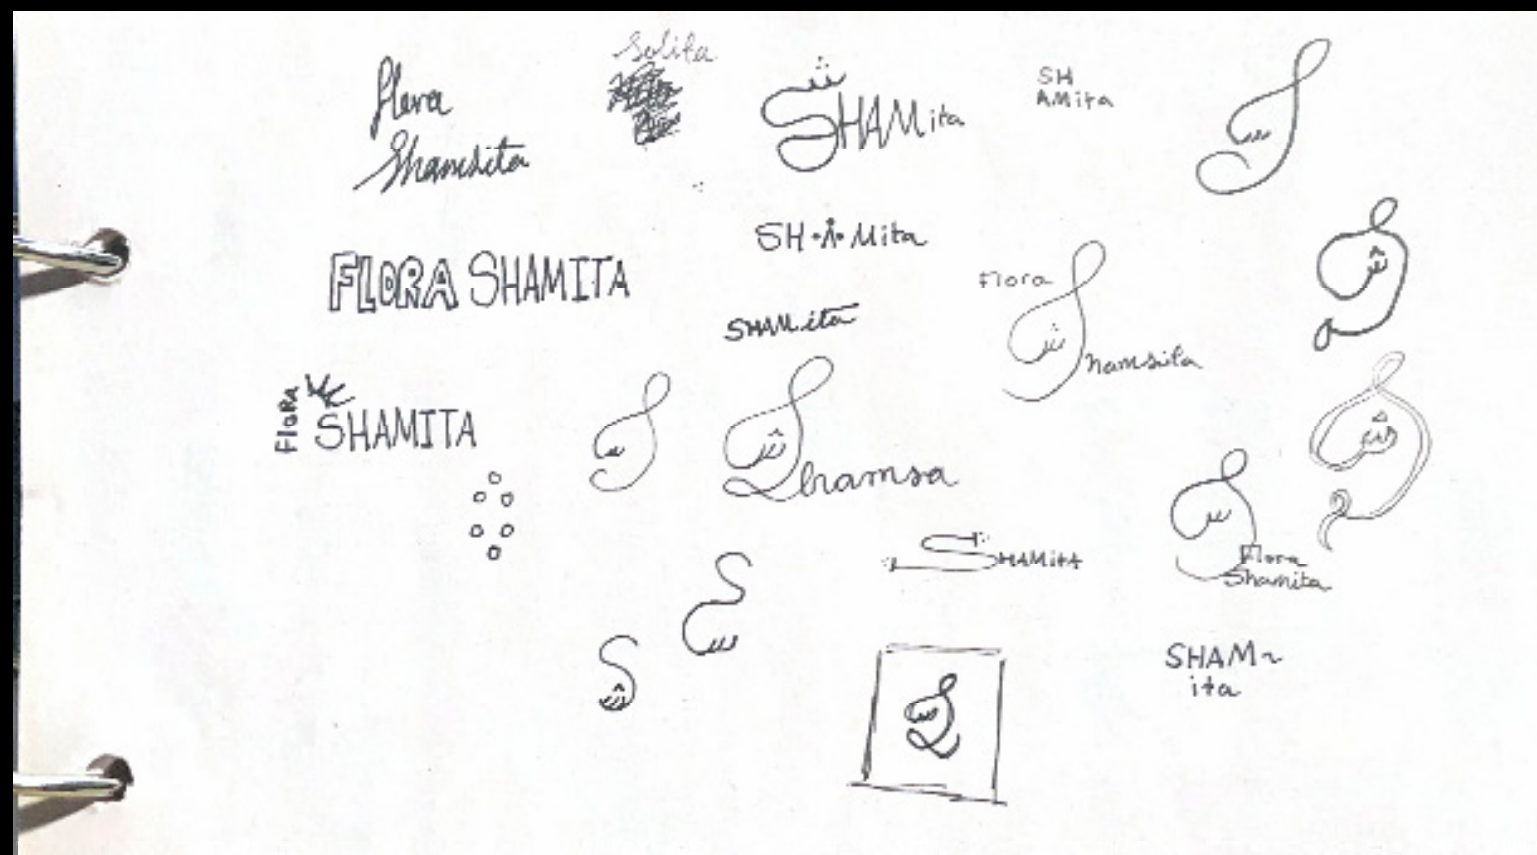 Flora
Shamsita
Solita
SHAMita
SH
AMita
SH·A·Mita
FLORA SHAMITA
SHAMita
Flora
Shamsita
FloRA
SHAMITA
Shamsa
SHAMitA
Flora
Shamita
ش
S
SHAM~
ita